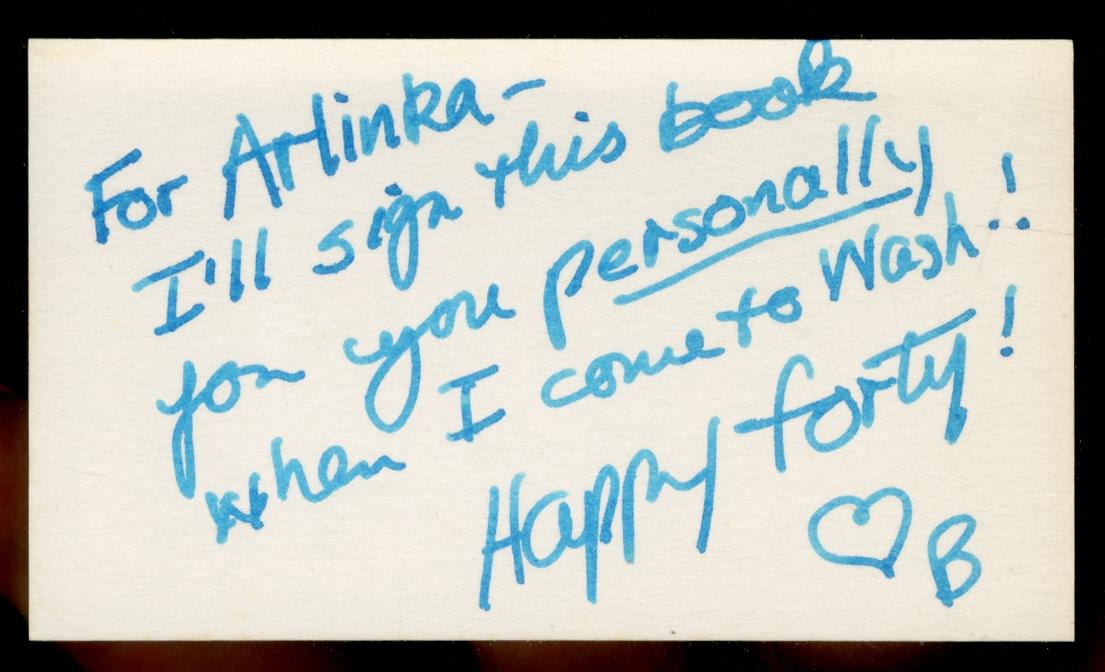 For Arlinka-
I'll sign this book
for you personally
when I come to Wash.!
Happy forty!
♡ B